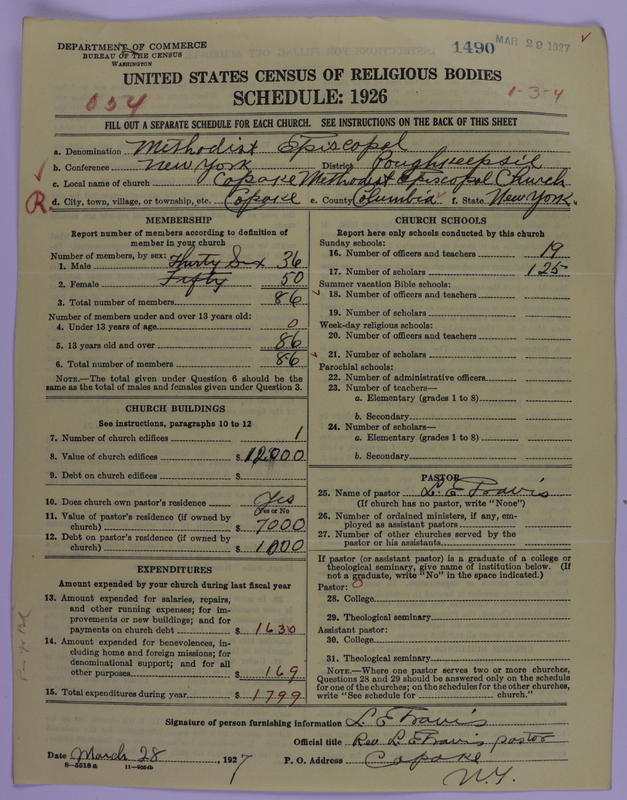 DEPARTMENT OF COMMERCE
BUREAU OF THE CENSUS
WASHINGTON
1490 MAR 29 1927
UNITED STATES CENSUS OF RELIGIOUS BODIES
SCHEDULE: 1926
054
1-3-4
FILL OUT A SEPARATE SCHEDULE FOR EACH CHURCH. SEE INSTRUCTIONS ON THE BACK OF THIS SHEET
a. Denomination Methodist Episcopal
b. Conference New York District Poughkeepsie
c. Local name of church Copake Methodist Episcopal Church
R. d. City, town, village, or township, etc. Copake e. County Columbia f. State New York
MEMBERSHIP
Report number of members according to definition of
member in your church
Number of members, by sex:
1. Male Thirty Six 36
2. Female Fifty 50
3. Total number of members 86
Number of members under and over 13 years old:
4. Under 13 years of age 0
5. 13 years old and over 86
6. Total number of members 86
NOTE.—The total given under Question 6 should be the
same as the total of males and females given under Question 3.
CHURCH BUILDINGS
See instructions, paragraphs 10 to 12
7. Number of church edifices 1
8. Value of church edifices $ 12000
9. Debt on church edifices $
10. Does church own pastor's residence Yes
(Yes or No
11. Value of pastor's residence (if owned by
church) $ 7000
12. Debt on pastor's residence (if owned by
church) $ 1000
EXPENDITURES
Amount expended by your church during last fiscal year
13. Amount expended for salaries, repairs,
and other running expenses; for im-
provements or new buildings; and for
payments on church debt $ 1630
14. Amount expended for benevolences, in-
cluding home and foreign missions; for
denominational support; and for all
other purposes $ 169
15. Total expenditures during year $ 1799
CHURCH SCHOOLS
Report here only schools conducted by this church
Sunday schools:
16. Number of officers and teachers 19
17. Number of scholars 125
Summer vacation Bible schools:
18. Number of officers and teachers
19. Number of scholars
Week-day religious schools:
20. Number of officers and teachers
21. Number of scholars
Parochial schools:
22. Number of administrative officers
23. Number of teachers—
a. Elementary (grades 1 to 8)
b. Secondary
24. Number of scholars—
a. Elementary (grades 1 to 8)
b. Secondary
PASTOR
25. Name of pastor L. E Travis
(If church has no pastor, write "None")
26. Number of ordained ministers, if any, em-
ployed as assistant pastors
27. Number of other churches served by the
pastor or his assistants
If pastor (or assistant pastor) is a graduate of a college or
theological seminary, give name of institution below. (If
not a graduate, write "No" in the space indicated.)
Pastor:
28. College
29. Theological seminary
Assistant pastor:
30. College
31. Theological seminary
NOTE.—Where one pastor serves two or more churches,
Questions 28 and 29 should be answered only on the schedule
for one of the churches; on the schedules for the other churches,
write "See schedule for church."
Signature of person furnishing information L E Travis
Official title Rev L E Travis pastor
Date March 28, 1927 P. O. Address Copake
8-5518a 11-9554b N.Y.